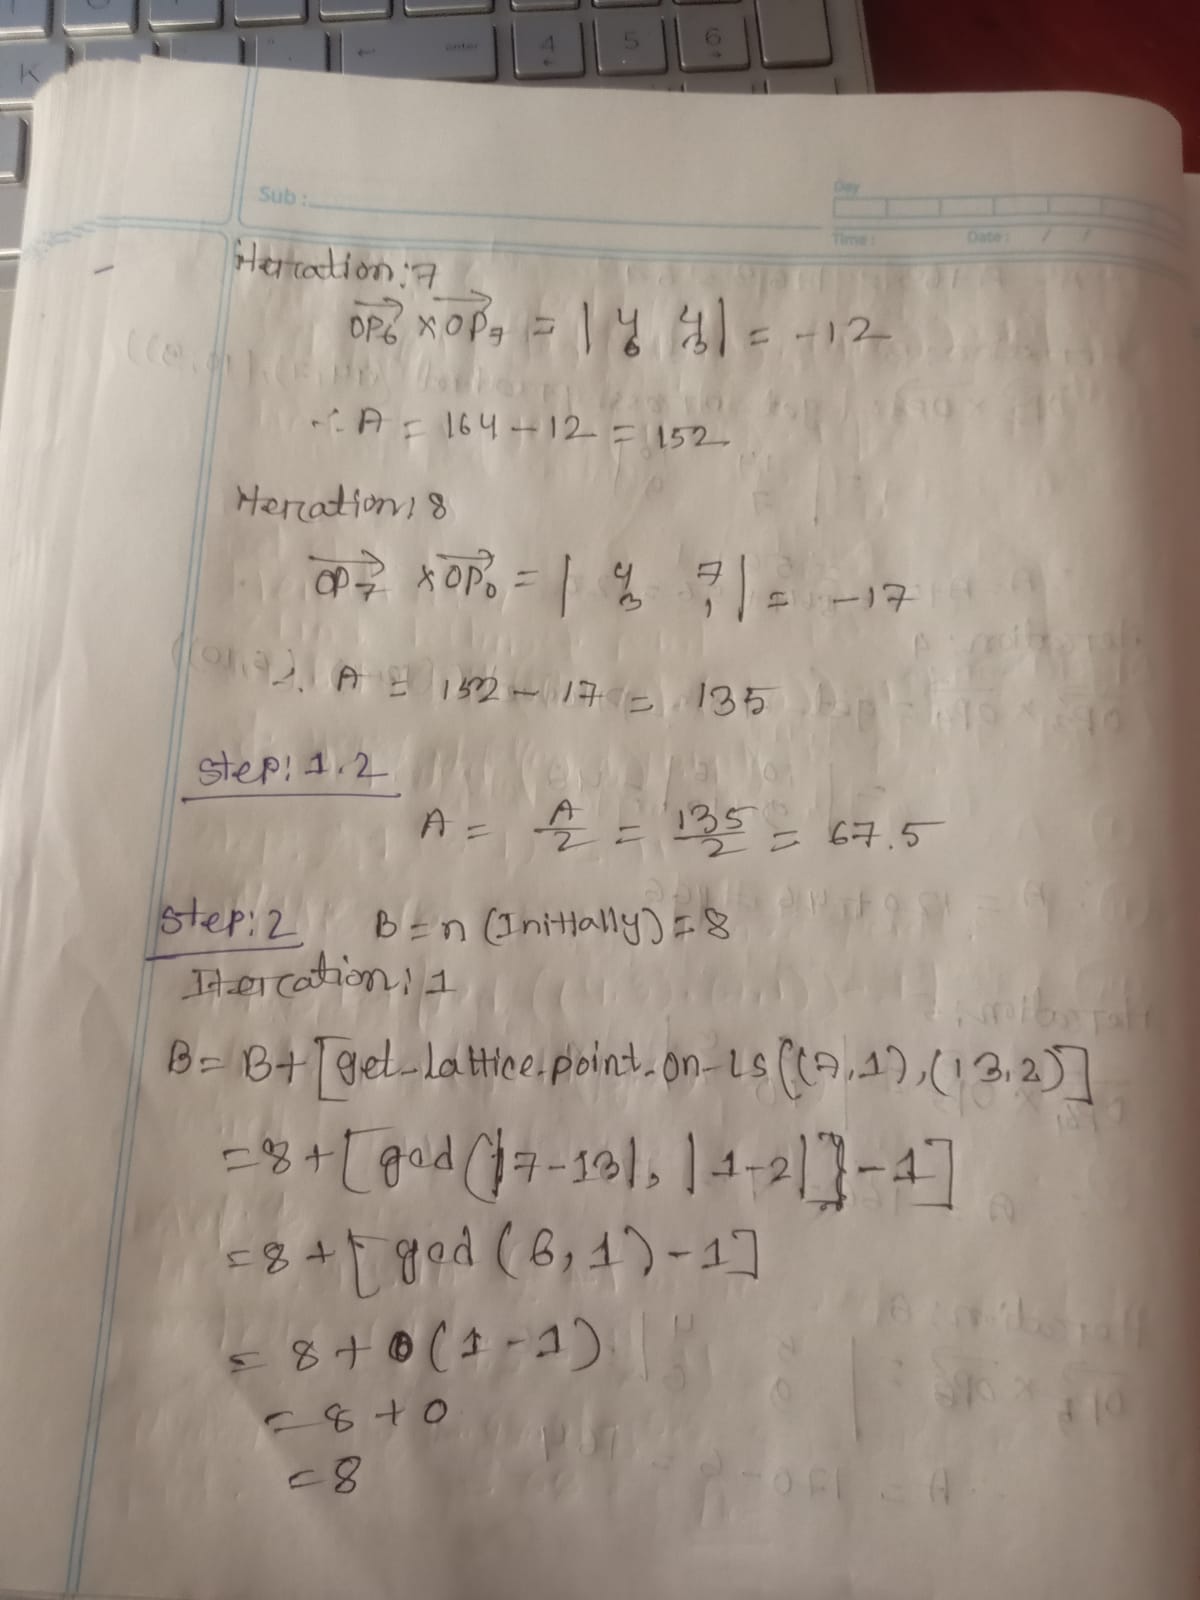 K
enter
4
5
6
Sub :
Day
Time :
Date : / /
Iteration: 7
OP6 × OP7 = | 4 4 |
| 6 3 | = -12
∴ A = 164 - 12 = 152
Iteration: 8
OP7 × OP0 = | 4 7 |
| 3 1 | = -17
∴ A = 152 - 17 = 135
Step: 1.2
A = A/2 = 135/2 = 67.5
Step: 2 B = n (Initially) = 8
Iteration: 1
B = B + [get_lattice_point_on_LS((7,1),(13,2)]
= 8 + [gcd(|7-13|, |1-2|)-1]
= 8 + [gcd (6, 1) - 1]
= 8 + (1 - 1)
= 8 + 0
= 8